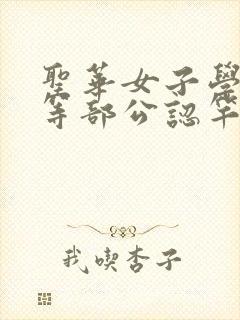 聖華女子學
等部公認竿
我喫杏子